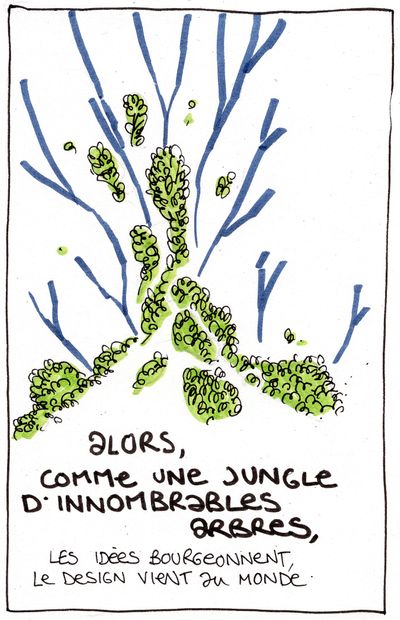 alors,
comme une jungle
d'innombrables
arbres,
les idées bourgeonnent,
le design vient au monde.